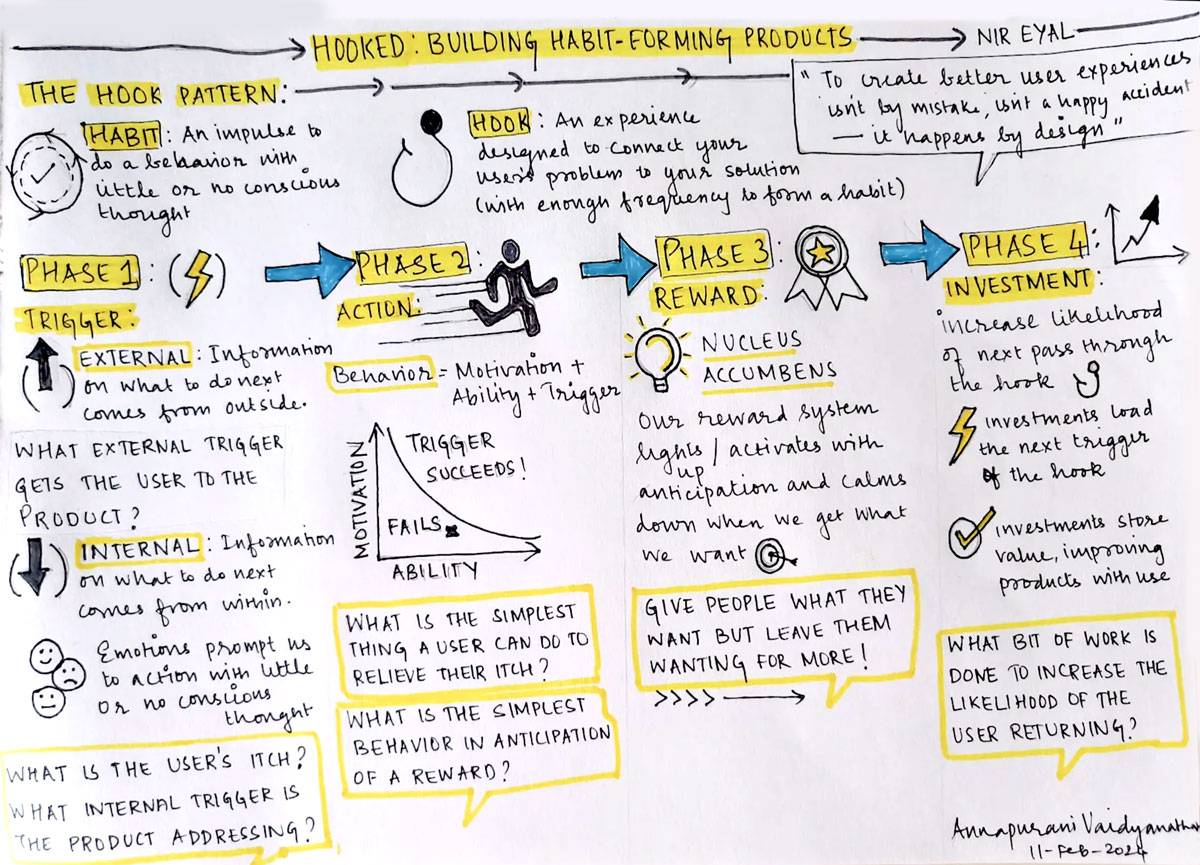 HOOKED: BUILDING HABIT-FORMING PRODUCTS
NIR EYAL
"To create better user experiences
isn't by mistake, isn't a happy accident
— it happens by design"
THE HOOK PATTERN:
HABIT: An impulse to
do a behavior with
little or no conscious
thought
HOOK: An experience
designed to connect your
user's problem to your solution
(with enough frequency to form a habit)
PHASE 1:
TRIGGER:
EXTERNAL: Information
on what to do next
comes from outside.
WHAT EXTERNAL TRIGGER
GETS THE USER TO THE
PRODUCT?
INTERNAL: Information
on what to do next
comes from within.
Emotions prompt us
to action with little
or no conscious
thought
WHAT IS THE USER'S ITCH?
WHAT INTERNAL TRIGGER IS
THE PRODUCT ADDRESSING?
PHASE 2:
ACTION:
Behavior = Motivation +
Ability + Trigger
MOTIVATION
TRIGGER
SUCCEEDS!
FAILS
ABILITY
WHAT IS THE SIMPLEST
THING A USER CAN DO TO
RELIEVE THEIR ITCH?
WHAT IS THE SIMPLEST
BEHAVIOR IN ANTICIPATION
OF A REWARD?
PHASE 3:
REWARD:
NUCLEUS
ACCUMBENS
Our reward system
lights up / activates with
anticipation and calms
down when we get what
we want
GIVE PEOPLE WHAT THEY
WANT BUT LEAVE THEM
WANTING FOR MORE!
PHASE 4:
INVESTMENT:
increase likelihood
of next pass through
the hook
investments load
the next trigger
of the hook
investments store
value, improving
products with use
WHAT BIT OF WORK IS
DONE TO INCREASE THE
LIKELIHOOD OF THE
USER RETURNING?
Annapurani Vaidyanathan
11-Feb-2024